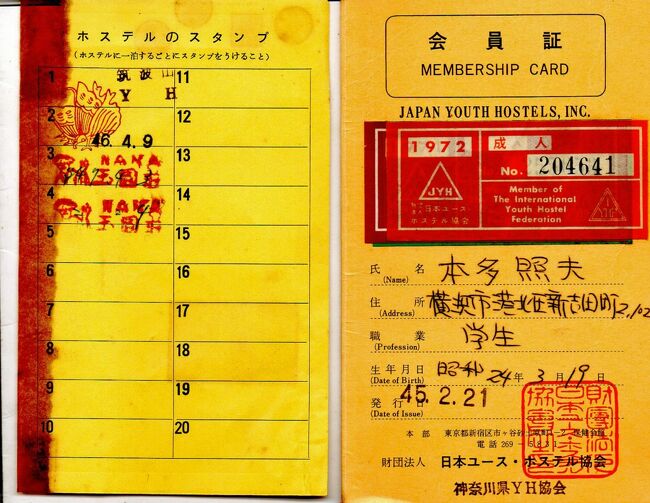 ホステルのスタンプ
(ホステルに一泊するごとにスタンプをうけること)
1
筑波山
Y H
2
46.4.9
3
4
5
6
7
8
9
10
11
12
13
14
15
16
17
18
19
20
会員証
MEMBERSHIP CARD
JAPAN YOUTH HOSTELS, INC.
1972
成人
No. 204641
JYH
日本ユース
ホステル協会
Member of
The International
Youth Hostel
Federation
氏名 本多照夫
(Name)
住所 横浜市港北区新吉田町2,102
(Address)
職業 学生
(Profession)
生年月日 昭和24年3月19日
(Date of Birth)
発行日 45.2.21
(Date of Issue)
本部 東京都新宿区市ヶ谷砂土原町1-2
電話 269-5831
財団法人 日本ユース・ホステル協会
神奈川県YH協会